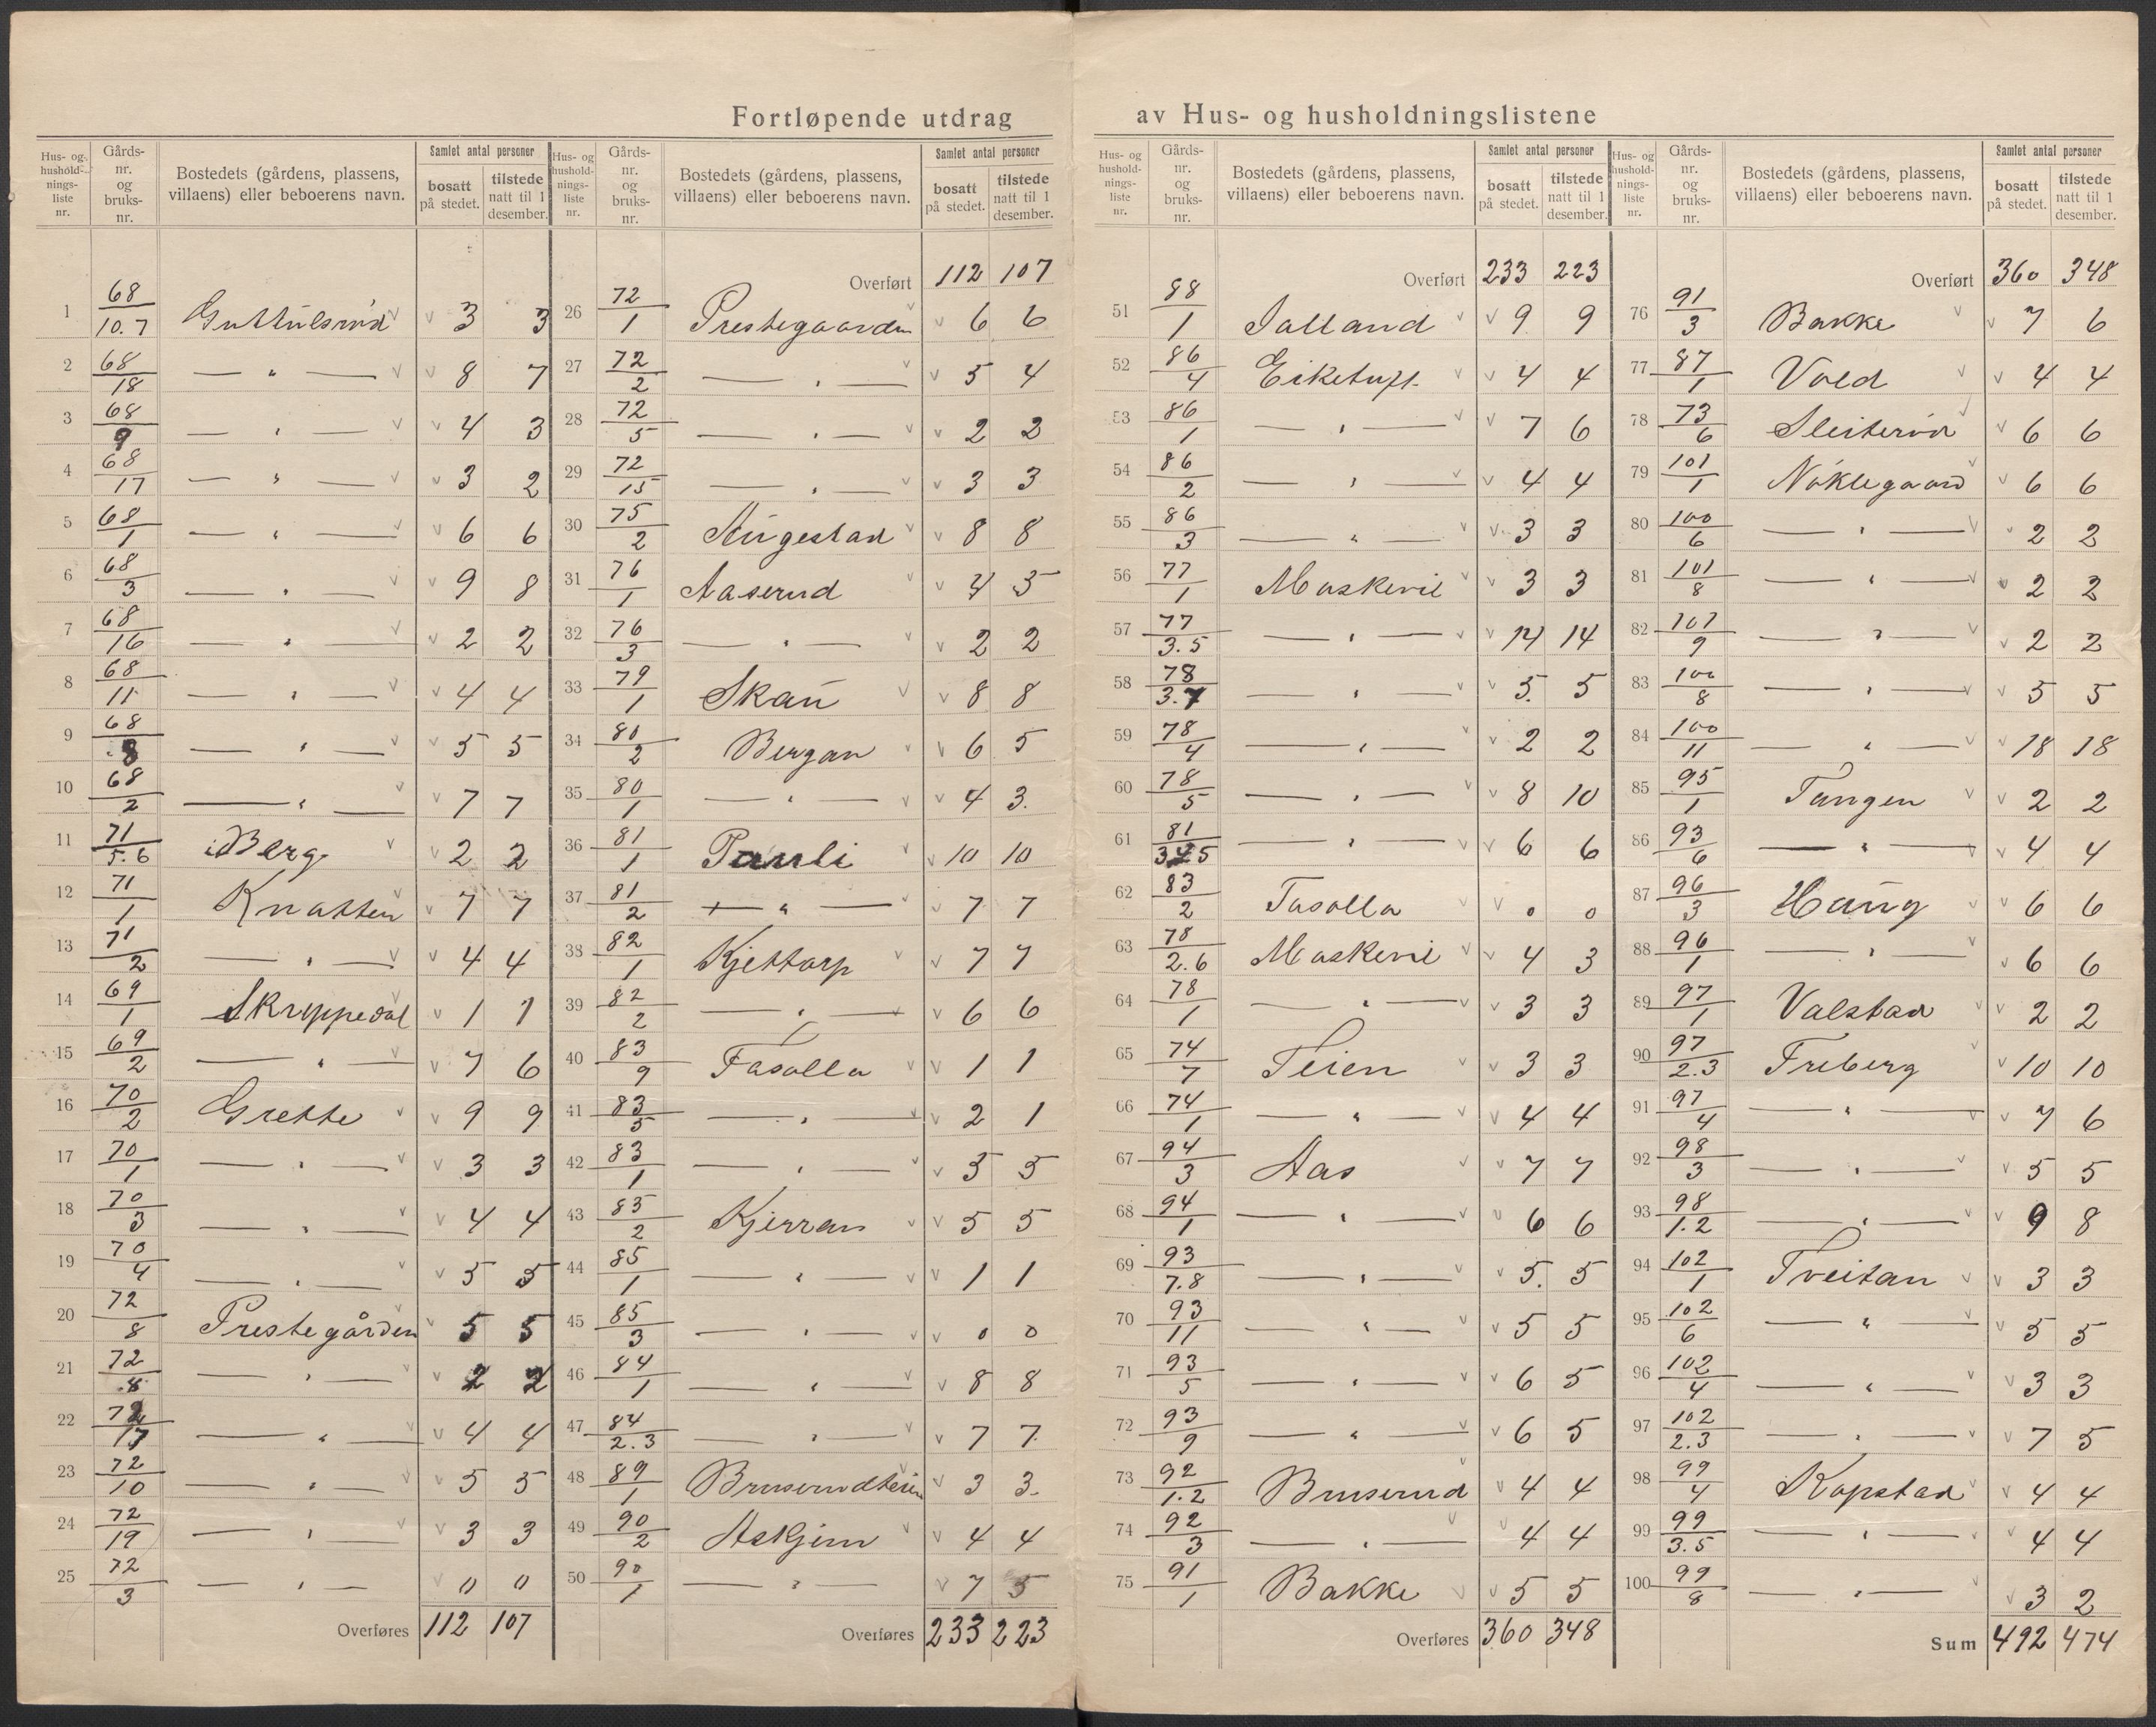 Fortløpende utdrag av Hus- og husholdningslistene
Hus- og hushold-nings-liste nr. | Gårds-nr. og bruks-nr. | Bostedets (gårdens, plassens, villaens) eller beboerens navn. | Samlet antal personer | bosatt på stedet. | tilstede natt til 1 desember.
1 68/10.7 Guttulsrød 3 3
2 68/18 — " — 8 7
3 68/9 — " — 4 3
4 68/17 — " — 3 2
5 68/1 — " — 6 6
6 68/3 — " — 9 8
7 68/16 — " — 2 2
8 68/11 — " — 4 4
9 68/8 — " — 5 5
10 68/2 — " — 7 7
11 71/5.6 Berg 2 2
12 71/1 Knatten 7 7
13 71/2 — " — 4 4
14 69/1 Skryppedal 1 1
15 69/2 — " — 7 6
16 70/2 Grette 9 9
17 70/1 — " — 3 3
18 70/3 — " — 4 4
19 70/4 — " — 5 5
20 72/8 Prestegården 5 5
21 72/8 — " — 2 2
22 72/17 — " — 4 4
23 72/10 — " — 5 5
24 72/19 — " — 3 3
25 72/3 — " — 0 0
Overføres 112 107
Hus- og hushold-nings-liste nr. | Gårds-nr. og bruks-nr. | Bostedets (gårdens, plassens, villaens) eller beboerens navn. | Samlet antal personer | bosatt på stedet. | tilstede natt til 1 desember.
Overført 112 107
26 72/1 Prestegaarden 6 6
27 72/2 — " — 5 4
28 72/5 — " — 2 2
29 72/15 — " — 3 3
30 75/2 Augestad 8 8
31 76/1 Aaserud 4 5
32 76/3 — " — 2 2
33 79/1 Skau 8 8
34 80/2 Bergan 6 5
35 80/1 — " — 4 3
36 81/1 Pauli 10 10
37 81/2 — " — 7 7
38 82/1 Kjettorp 7 7
39 82/2 — " — 6 6
40 83/9 Fasolla 1 1
41 83/5 — " — 2 1
42 83/1 — " — 5 5
43 85/2 Kjerran 5 5
44 85/1 — " — 1 1
45 85/3 — " — 0 0
46 84/1 — " — 8 8
47 84/2.3 — " — 7 7
48 89/1 Bruserudteien 3 3
49 90/2 Askjem 4 4
50 90/1 — " — 7 5
Overføres 233 223
Hus- og hushold-nings-liste nr. | Gårds-nr. og bruks-nr. | Bostedets (gårdens, plassens, villaens) eller beboerens navn. | Samlet antal personer | bosatt på stedet. | tilstede natt til 1 desember.
Overført 233 223
51 88/1 Jalland 9 9
52 86/4 Eiketuft 4 4
53 86/1 — " — 7 6
54 86/2 — " — 4 4
55 86/3 — " — 3 3
56 77/1 Maskevie 3 3
57 77/3.5 — " — 14 14
58 78/3.7 — " — 5 5
59 78/4 — " — 2 2
60 78/5 — " — 8 10
61 81/345 — " — 6 6
62 83/2 Fasolla 0 0
63 78/2.6 Maskevie 4 3
64 78/1 — " — 3 3
65 74/7 Teien 3 3
66 74/1 — " — 4 4
67 94/3 Aas 7 7
68 94/1 — " — 6 6
69 93/7.8 — " — 5 5
70 93/11 — " — 5 5
71 93/5 — " — 6 5
72 93/9 — " — 6 5
73 92/1.2 Bruserud 4 4
74 92/3 — " — 4 4
75 91/1 Bakke 5 5
Overføres 360 348
Hus- og hushold-nings-liste nr. | Gårds-nr. og bruks-nr. | Bostedets (gårdens, plassens, villaens) eller beboerens navn. | Samlet antal personer | bosatt på stedet. | tilstede natt til 1 desember.
Overført 360 348
76 91/3 Bakke 7 6
77 87/1 Vold 4 4
78 73/6 Sleiterød 6 6
79 101/1 Nøklegaard 6 6
80 100/6 — " — 2 2
81 101/8 — " — 2 2
82 101/9 — " — 2 2
83 100/8 — " — 5 5
84 100/11 — " — 18 18
85 95/1 Tangen 2 2
86 93/6 — " — 4 4
87 96/3 Haug 6 6
88 96/1 — " — 6 6
89 97/1 Valstad 2 2
90 97/2.3 Freberg 10 10
91 97/4 — " — 7 6
92 98/3 — " — 5 5
93 98/1.2 — " — 9 8
94 102/1 Tveitan 3 3
95 102/6 — " — 5 5
96 102/4 — " — 3 3
97 102/2.3 — " — 7 5
98 99/4 Kopstad 4 4
99 99/3.5 — " — 4 4
100 99/8 — " — 3 2
Sum 492 474